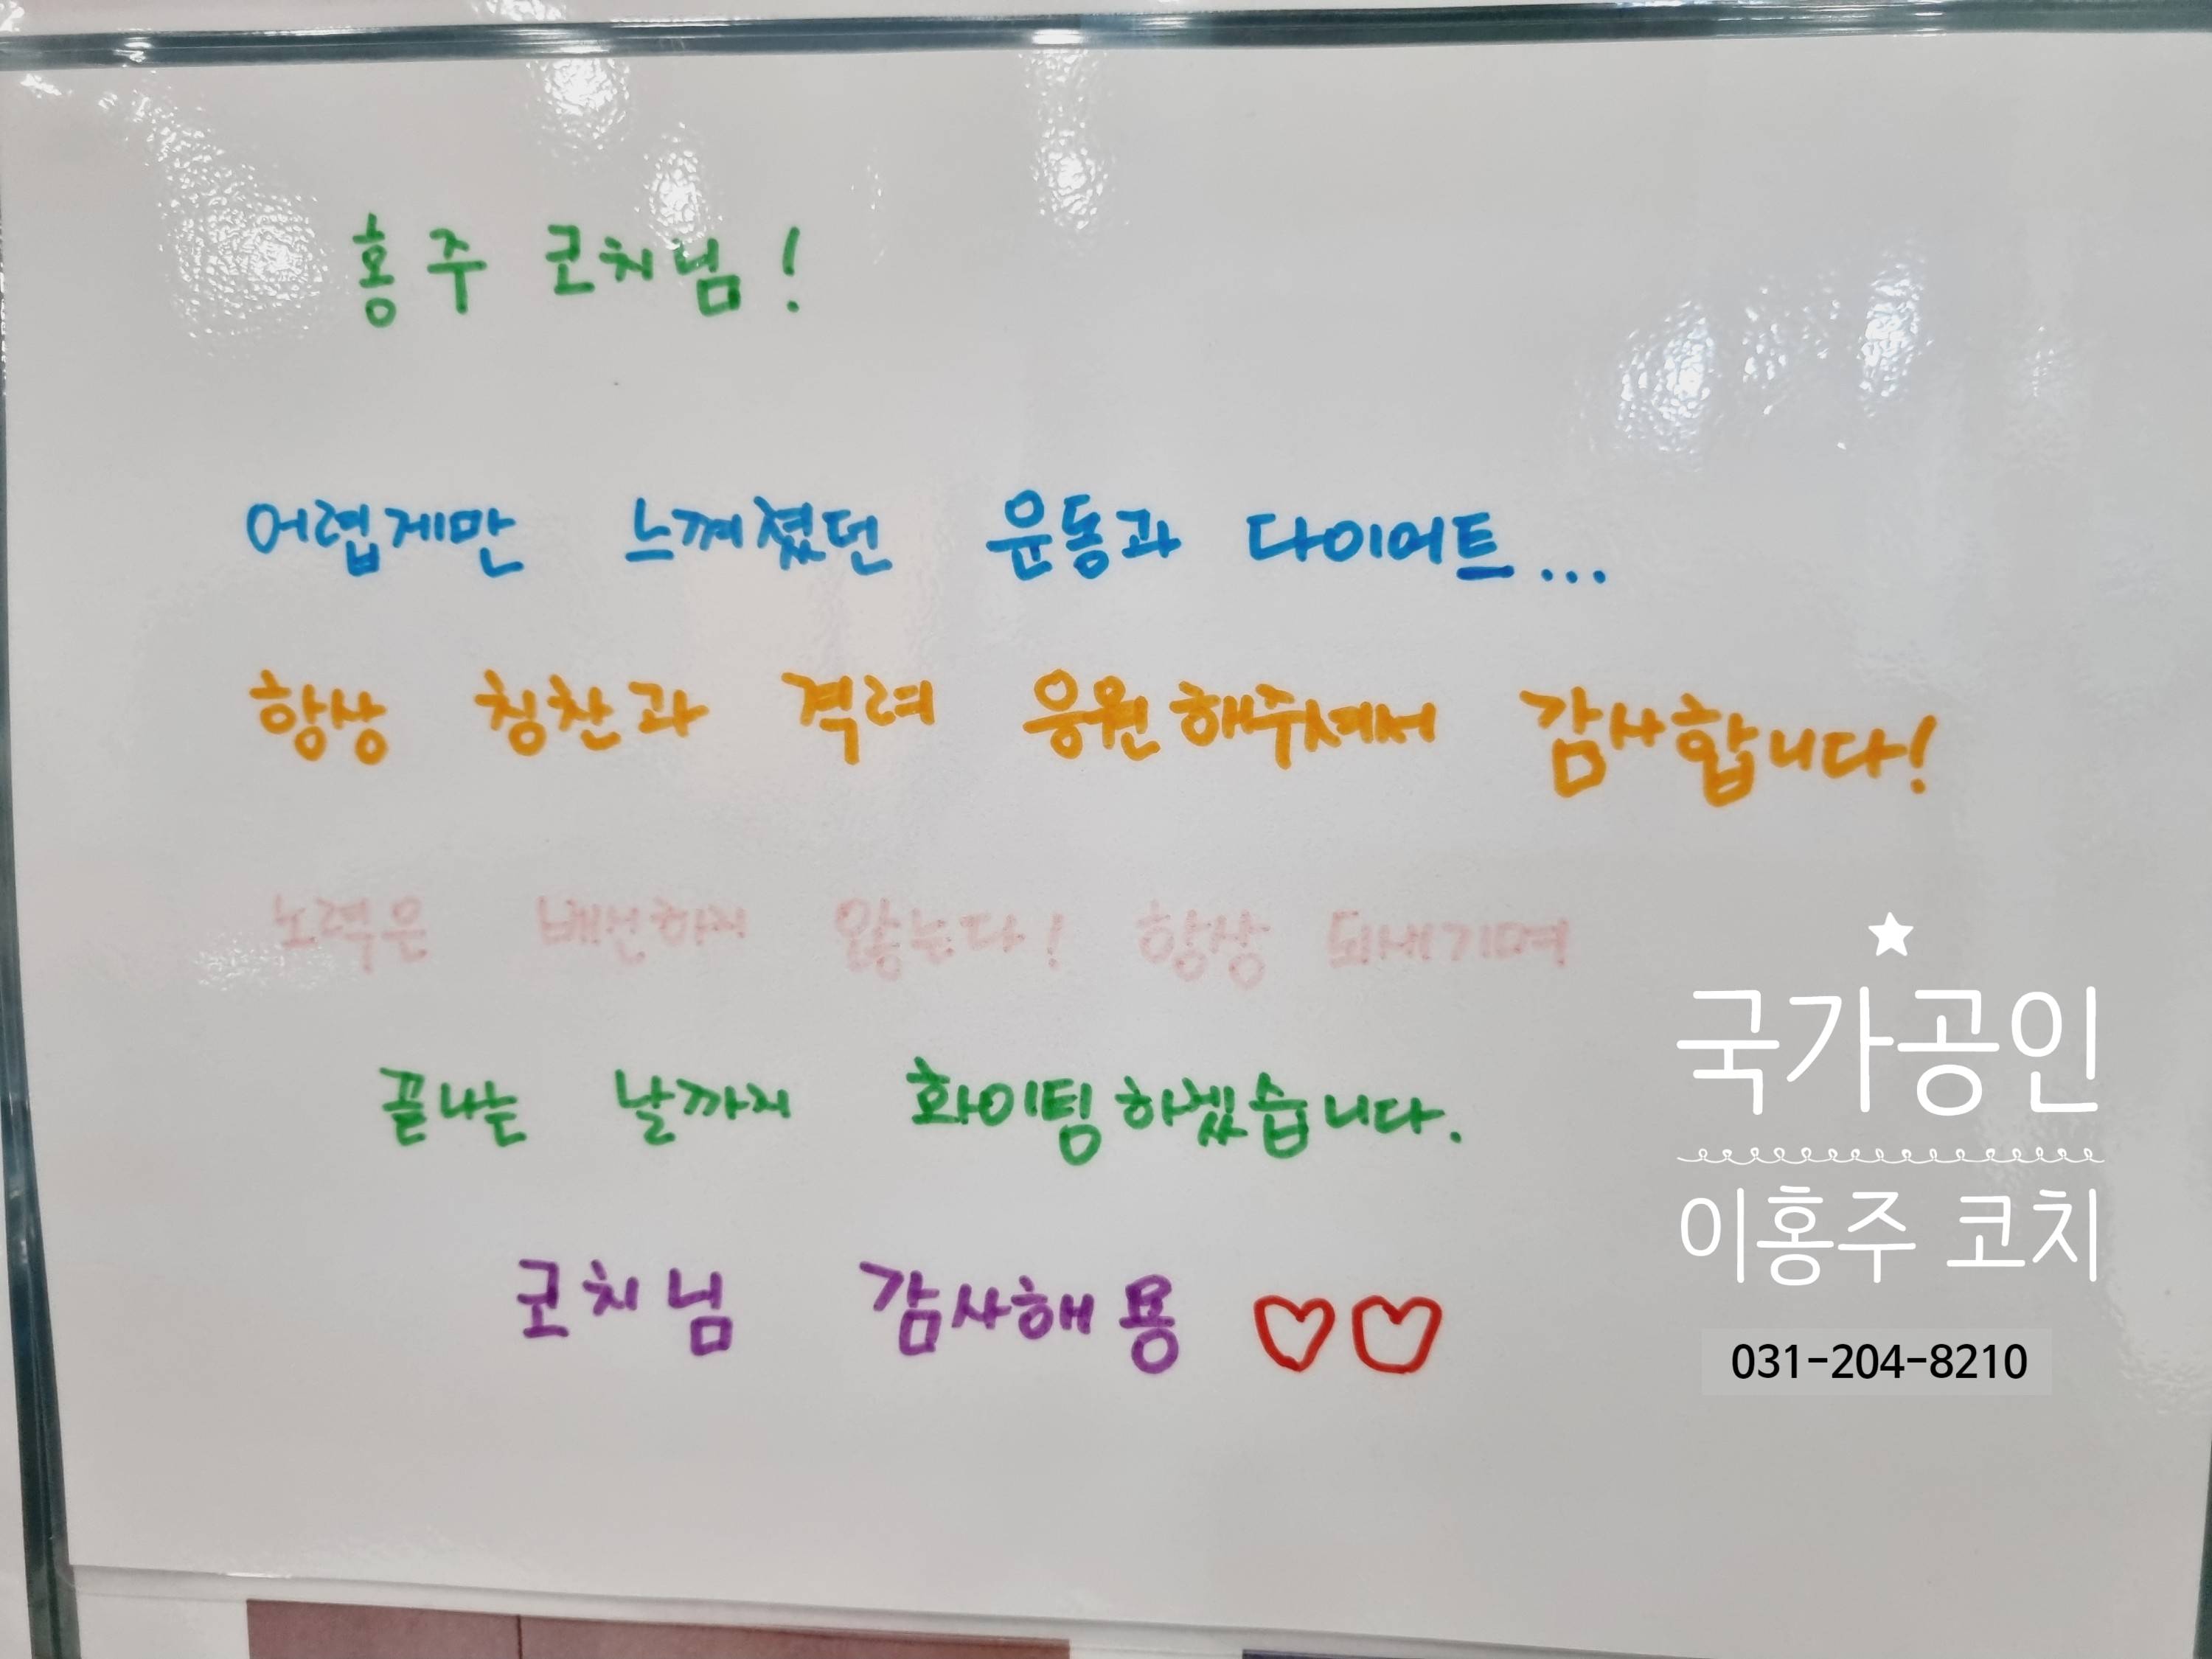 홍주 코치님!
어렵게만 느껴졌던 운동과 다이어트...
항상 칭찬과 격려 응원해주셔서 감사합니다!
노력은 배신하지 않는다! 항상 되새기며
끝나는 날까지 화이팅하겠습니다.
코치님 감사해용 ♡♡
국가공인
이홍주 코치
031-204-8210